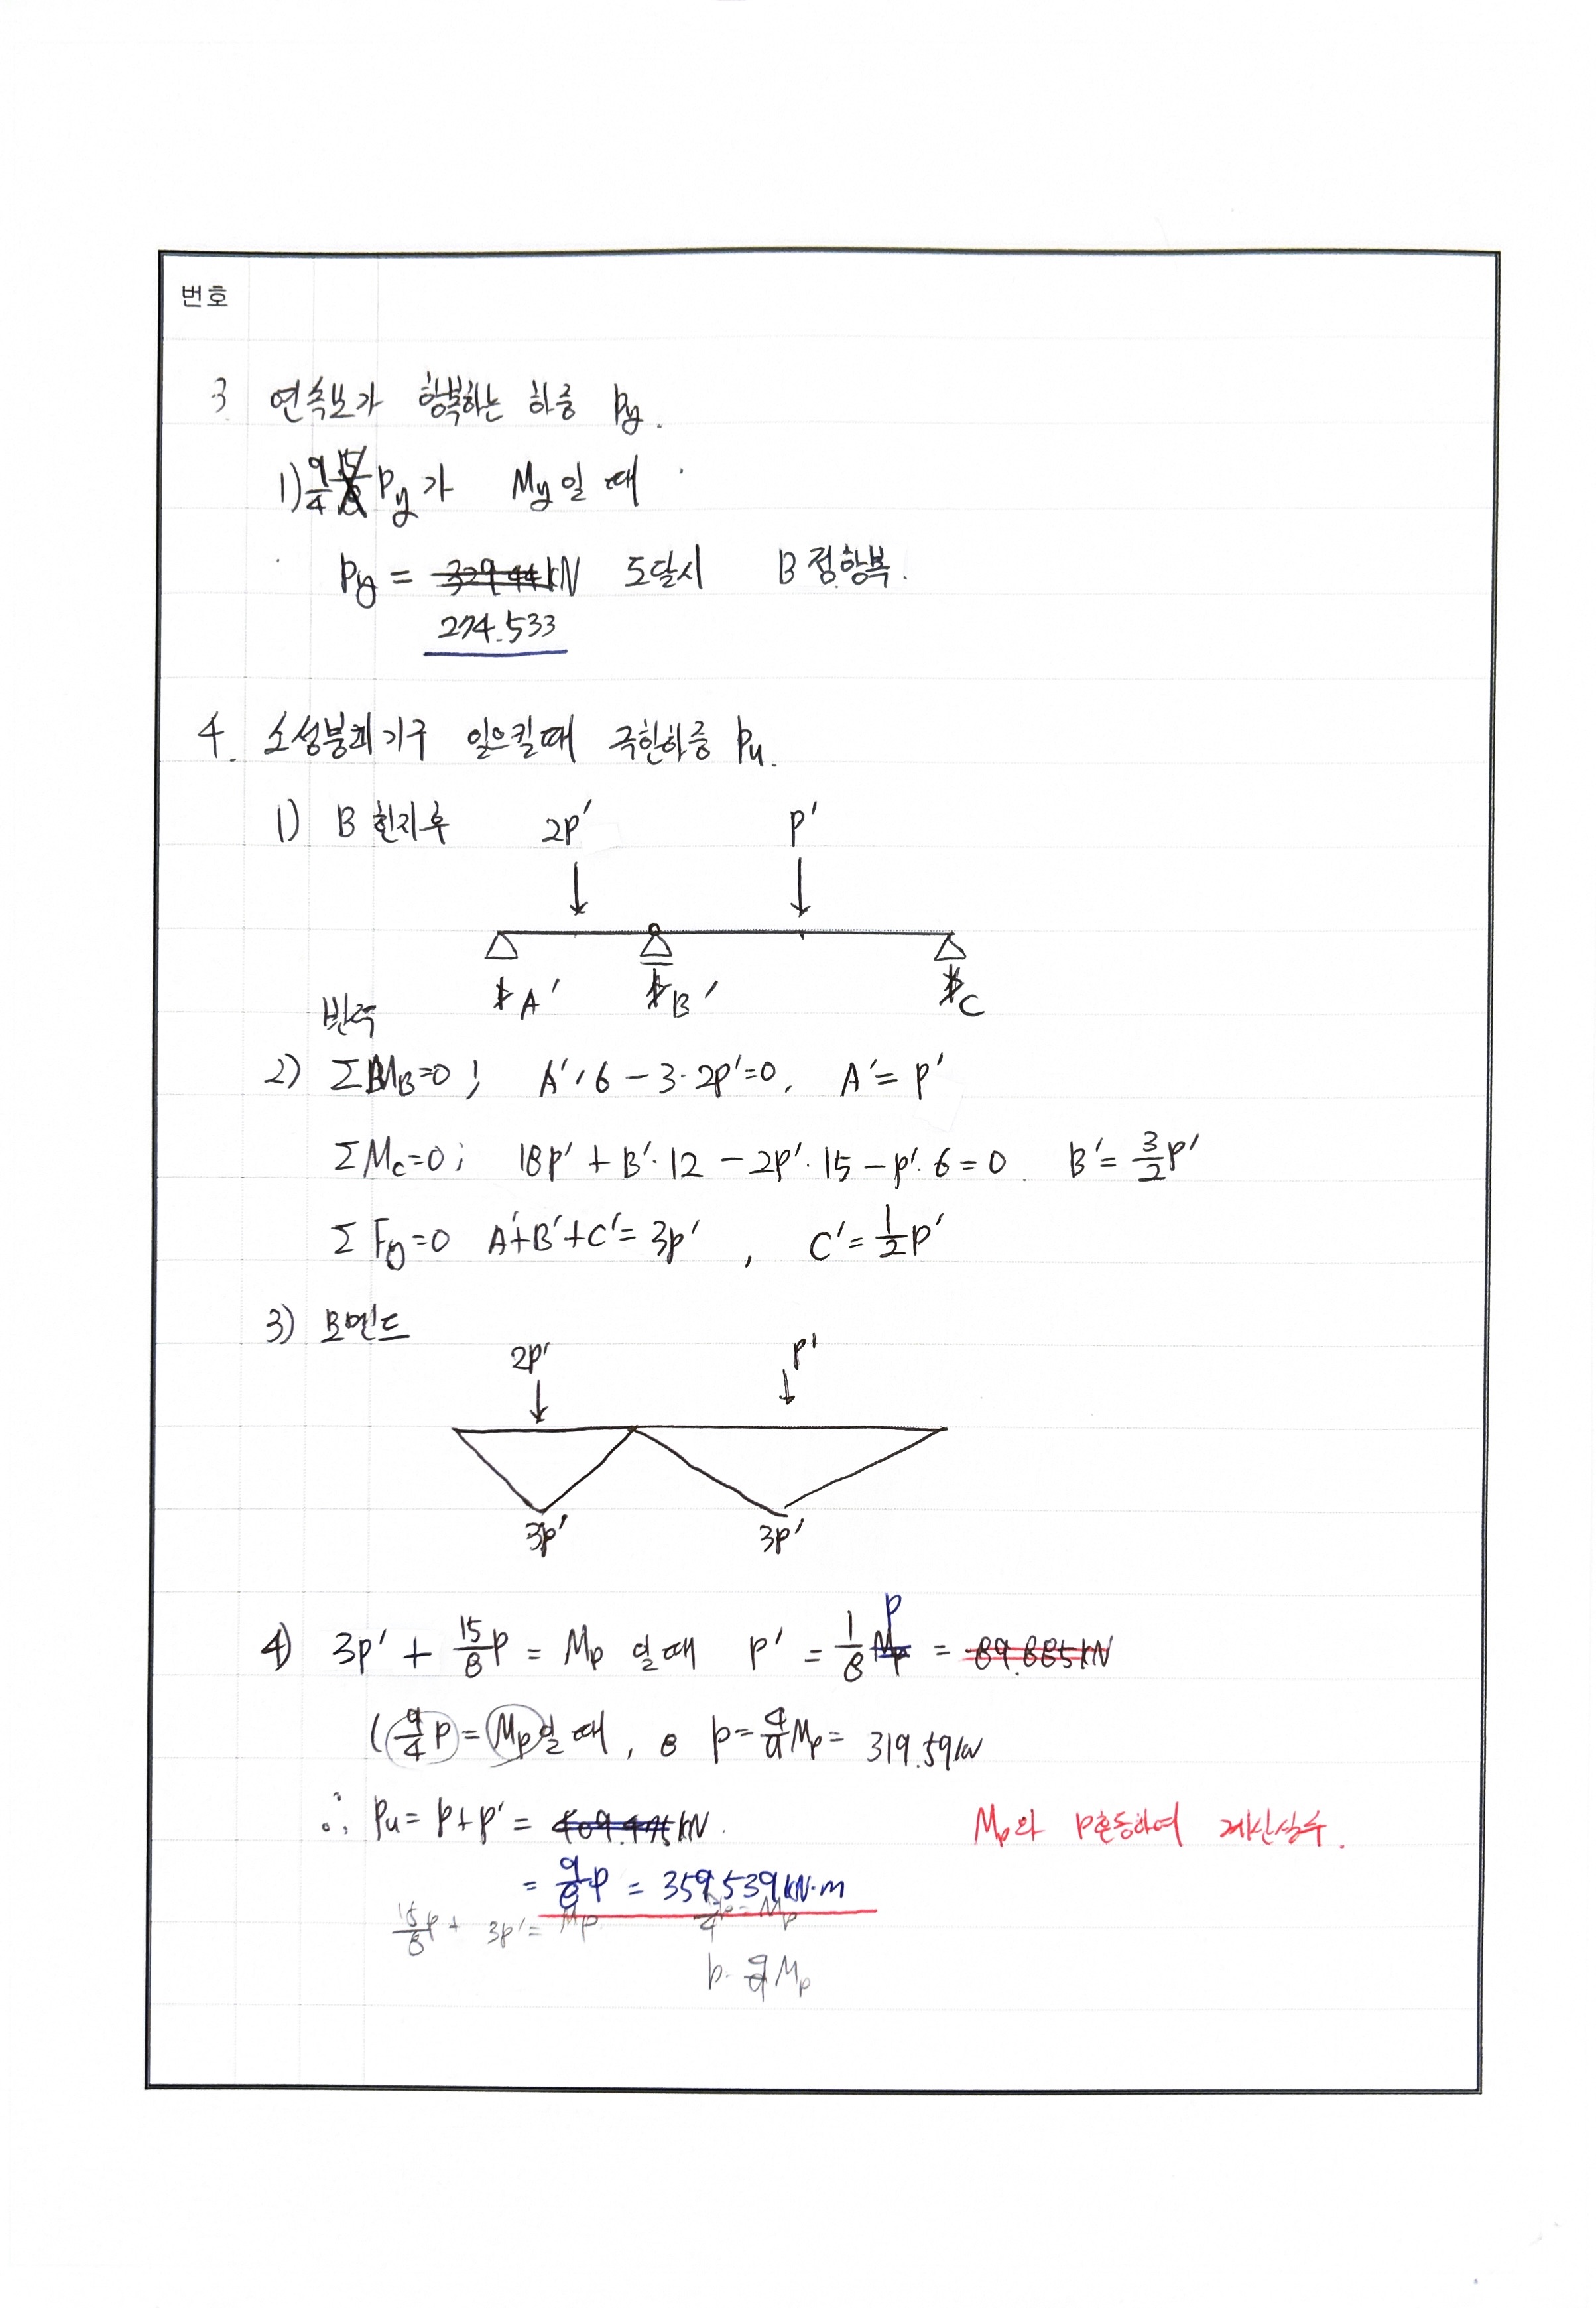 번호
3 연속보가 항복하는 하중 Py.
1) 9/4 Py가 My일 때
Py = 329.44kN 도달시 B점항복.
274.533
4. 소성붕괴기구 일으킬때 극한하중 Pu.
1) B 힌지후 2P′ P′
A′ B′ C
반력
2) ΣMB=0 ; A′·6 − 3·2P′=0. A′= P′
ΣMc=0 ; 18P′ + B′·12 − 2P′·15 − P′·6 = 0. B′= 3/2 P′
ΣFy=0 A′+B′+C′= 3P′ , C′= 1/2 P′
3) 모멘트
2P′ P′
3P′ 3P′
4) 3P′ + 15/8 P = Mp 일때 P′ = 1/8 P = 89.885kN
( 9/4 P = Mp일 때, P= 4/9 Mp = 319.59kN
∴ Pu= P+P′ = 409.475kN.
Mp와 P혼동하여 계산실수.
= 9/8 P = 359.539kN·m
15/8 P + 3P′= Mp 9/4 P = Mp
P= 4/9 Mp